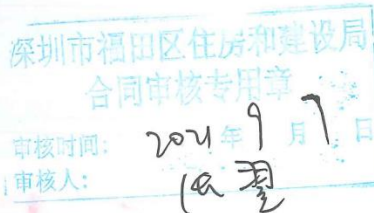 深圳市福田区住房和建设局
合同审核专用章
审核时间: 2021年9月7日
审核人: